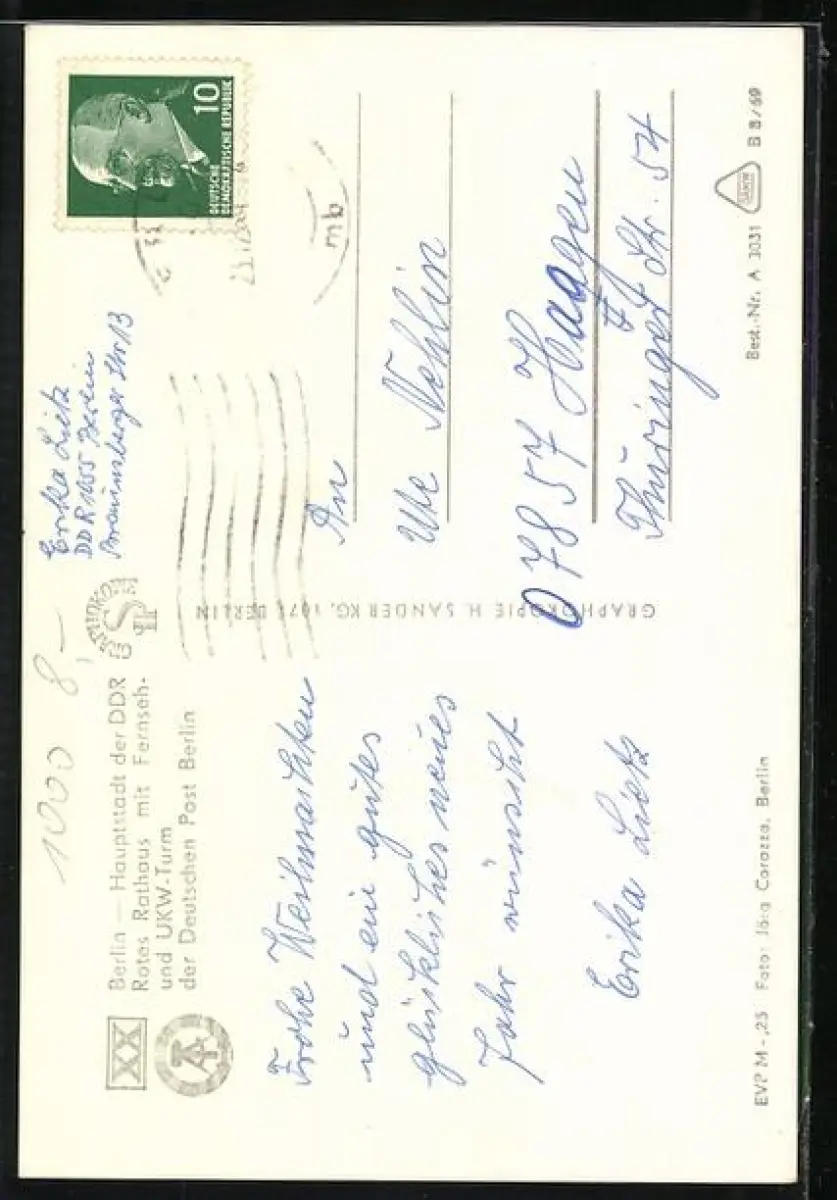 XX
Berlin — Hauptstadt der DDR
Rotes Rathaus mit Fernseh-
und UKW-Turm
der Deutschen Post Berlin
1000 8,-
Frohe Weihnachten
und ein gutes
glückliches neues
Jahr wünscht
Erika Lietz
EVP M -,25 Foto: Jörg Corazza, Berlin
GRAPHOKOPIE H. SANDER KG, 1071 BERLIN
Erika Lietz
DDR 1055 Berlin
Braunsberger Str 13
10
DEUTSCHE
DEMOKRATISCHE REPUBLIK
mb
An
Ute Nehlin
07857 Haagen
Thüringer Str. 54
Best.-Nr. A 3031 B 8/69